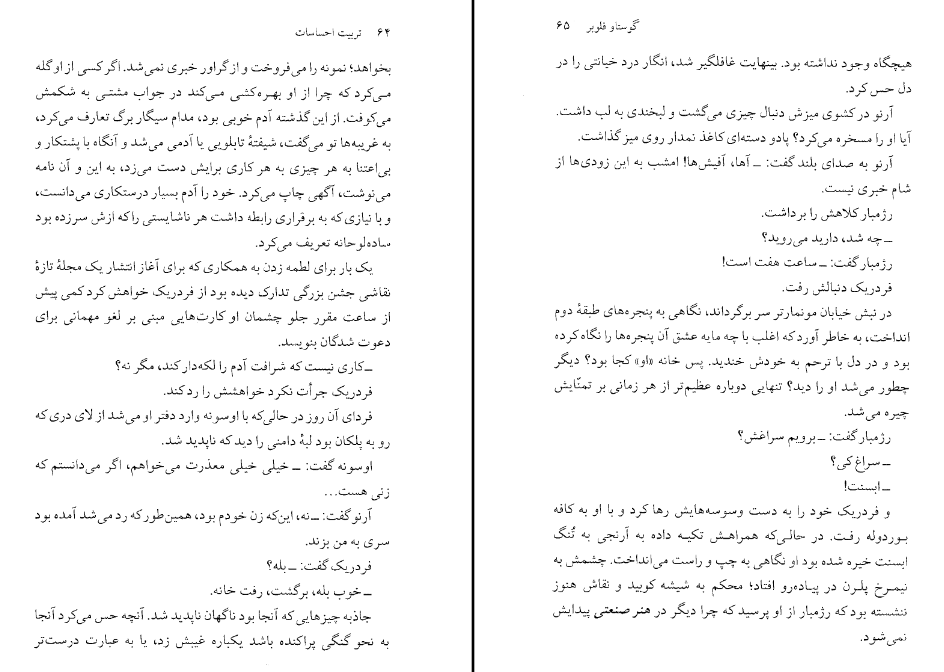 ۶۴ تربیت احساسات
بخواهد؛ نمونه را می‌فروخت و از گراور خبری نمی‌شد. اگر کسی از او گله
می‌کرد که چرا از او بهره‌کشی می‌کند در جواب مشتی به شکمش
می‌کوفت. از این گذشته آدم خوبی بود، مدام سیگار برگ تعارف می‌کرد،
به غریبه‌ها تو می‌گفت، شیفتهٔ تابلویی یا آدمی می‌شد و آنگاه با پشتکار و
بی‌اعتنا به هر چیزی به هر کاری برایش دست می‌زد، به این و آن نامه
می‌نوشت، آگهی چاپ می‌کرد. خود را آدم بسیار درستکاری می‌دانست،
و با نیازی که به برقراری رابطه داشت هر ناشایستی را که ازش سرزده بود
ساده‌لوحانه تعریف می‌کرد.
یک بار برای لطمه زدن به همکاری که برای آغاز انتشار یک مجلهٔ تازهٔ
نقاشی جشن بزرگی تدارک دیده بود از فردریک خواهش کرد کمی پیش
از ساعت مقرر جلو چشمان او کارت‌هایی مبنی بر لغو مهمانی برای
دعوت شدگان بنویسد.
ـ کاری نیست که شرافت آدم را لکه‌دار کند، مگر نه؟
فردریک جرأت نکرد خواهشش را رد کند.
فردای آن روز در حالی‌که با اوسونه وارد دفتر او می‌شد از لای دری که
رو به پلکان بود لبهٔ دامنی را دید که ناپدید شد.
اوسونه گفت: ـ خیلی خیلی معذرت می‌خواهم، اگر می‌دانستم که
زنی هست...
آرنو گفت: ـ نه، این‌که زن خودم بود، همین‌طور که رد می‌شد آمده بود
سری به من بزند.
فردریک گفت: ـ بله؟
ـ خوب بله، برگشت، رفت خانه.
جاذبه چیزهایی که آنجا بود ناگهان ناپدید شد. آنچه حس می‌کرد آنجا
به نحو گنگی پراکنده باشد یکباره غیبش زد، یا به عبارت درست‌تر
گوستاو فلوبر ۶۵
هیچگاه وجود نداشته بود. بینهایت غافلگیر شد، انگار درد خیانتی را در
دل حس کرد.
آرنو در کشوی میزش دنبال چیزی می‌گشت و لبخندی به لب داشت.
آیا او را مسخره می‌کرد؟ پادو دسته‌ای کاغذ نمدار روی میز گذاشت.
آرنو به صدای بلند گفت: ـ آها، آفیش‌ها! امشب به این زودی‌ها از
شام خبری نیست.
رژمبار کلاهش را برداشت.
ـ چه شد، دارید می‌روید؟
رژمبار گفت: ـ ساعت هفت است!
فردریک دنبالش رفت.
در نبش خیابان مونمارتر سر برگرداند، نگاهی به پنجره‌های طبقهٔ دوم
انداخت، به خاطر آورد که اغلب با چه مایه عشق آن پنجره‌ها را نگاه کرده
بود و در دل با ترحم به خودش خندید. پس خانه «او» کجا بود؟ دیگر
چطور می‌شد او را دید؟ تنهایی دوباره عظیم‌تر از هر زمانی بر تمنّایش
چیره می‌شد.
رژمبار گفت: ـ برویم سراغش؟
ـ سراغ کی؟
ـ ابسنت!
و فردریک خود را به دست وسوسه‌هایش رها کرد و با او به کافه
بوردوله رفت. در حالی‌که همراهش تکیه داده به آرنجی به تُنگ
ابسنت خیره شده بود او نگاهی به چپ و راست می‌انداخت. چشمش به
نیمرخ پلرن در پیاده‌رو افتاد؛ محکم به شیشه کوبید و نقاش هنوز
ننشسته بود که رژمبار از او پرسید که چرا دیگر در هنر صنعتی پیدایش
نمی‌شود.